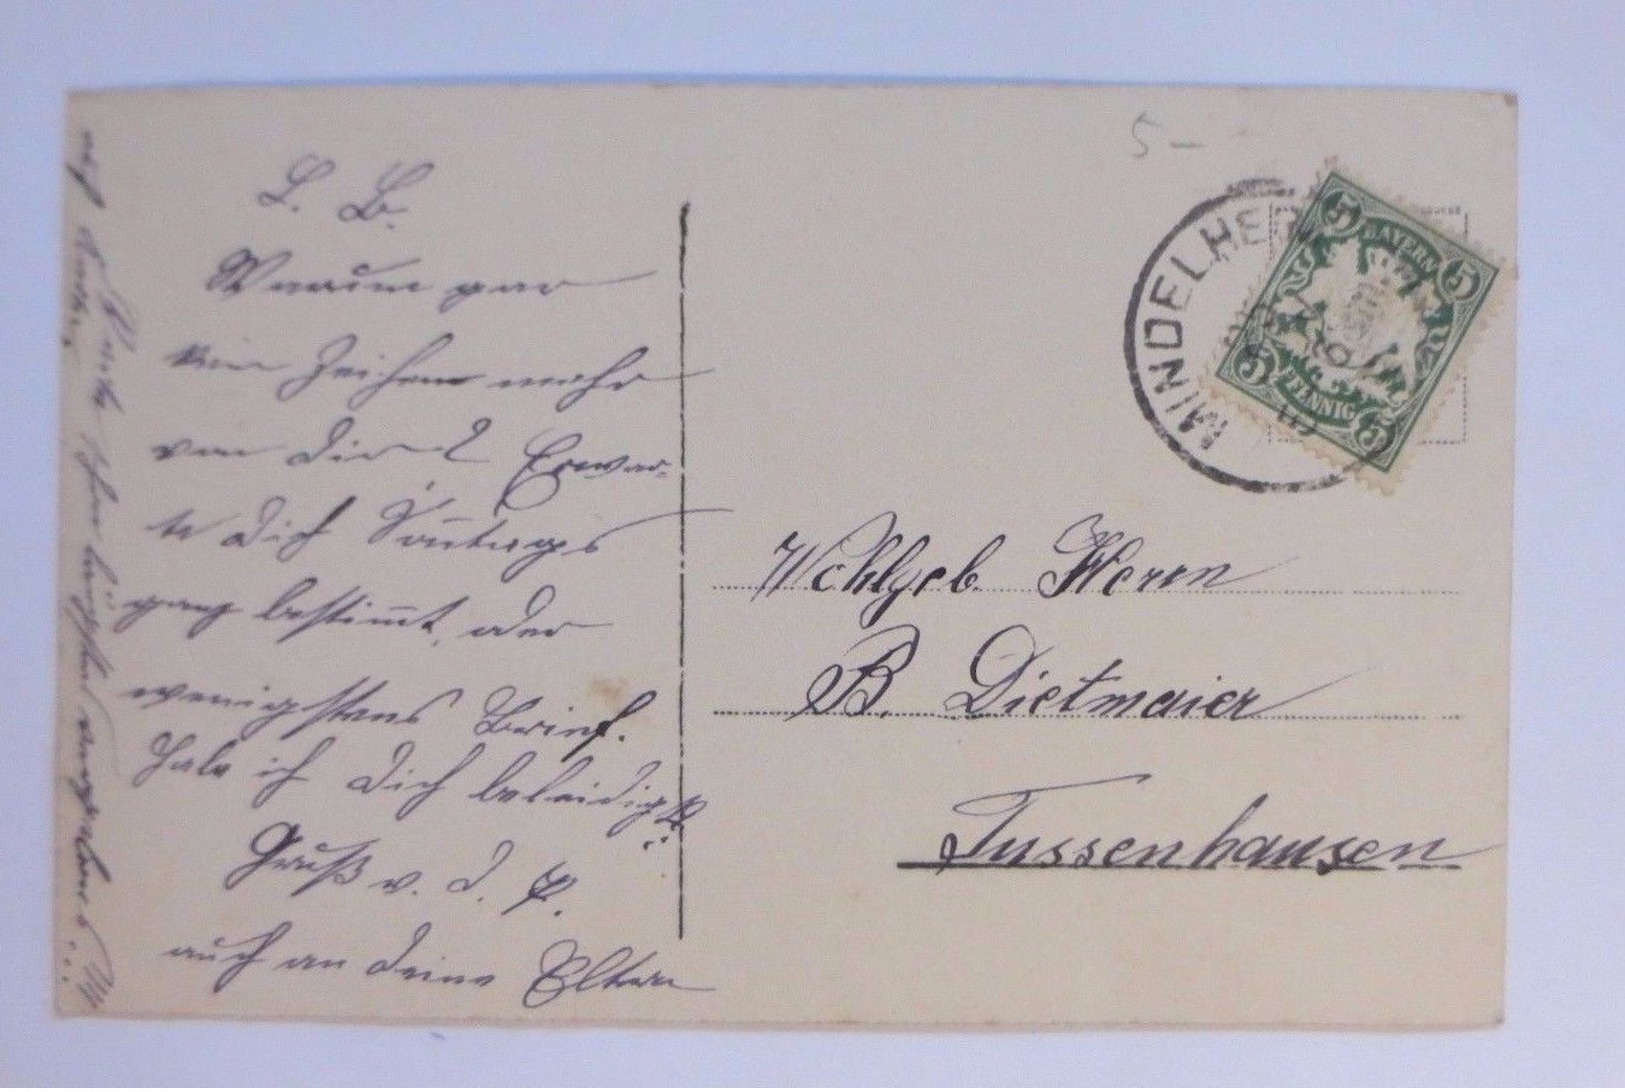 L. B.
Warum gar
kein Zeichen mehr
von Dir? Erwar-
te Dich Sonntags
ganz bestimmt, oder
wenigstens Brief.
Habe ich Dich beleidigt?
Gruß v. d. F.
auch an Deine Eltern
5-
MINDELHEIM
5 BAYERN 5
5 PFENNIG 5
Wohlgeb. Herrn
B. Dietmaier
Tussenhausen